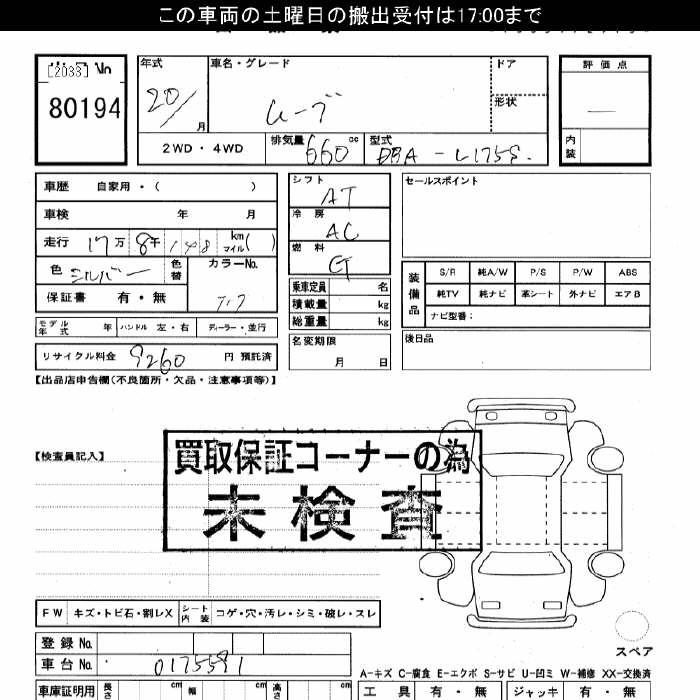 この車両の土曜日の搬出受付は17:00まで
[2033] No
80194
年式
20/
月
車名・グレード
ムーブ
ドア
形状
評価点
内装
2WD・4WD
排気量 660 cc
型式 DBA-L175S.
車歴 自家用・( )
車検 年 月
走行 17万 8千 148 km マイル( )
色 シルバー 色替
カラーNo.
保証書 有・無
モデル年式 年 ハンドル 左・右 ディーラー・並行
リサイクル料金 9260 円 預託済
シフト
AT
冷房
AC
燃料
G
乗車定員 名
積載量 kg
総重量 kg
名変期限
月 日
セールスポイント
装備品
S/R 純A/W P/S P/W ABS
純TV 純ナビ 革シート 外ナビ エアB
ナビ型番:
後日品
【出品店申告欄(不良箇所・欠品・注意事項等)】
【検査員記入】
買取保証コーナーの為
未検査
FW キズ・トビ石・割レX シート内装 コゲ・穴・汚レ・シミ・破レ・スレ
登録No.
車台No. 0175591
スペア
A-キズ C-腐食 E-エクボ S-サビ U-凹ミ W-補修 XX-交換済
車庫証明用 長さ cm 幅 cm 高さ cm
工具 有・無 ジャッキ 有・無